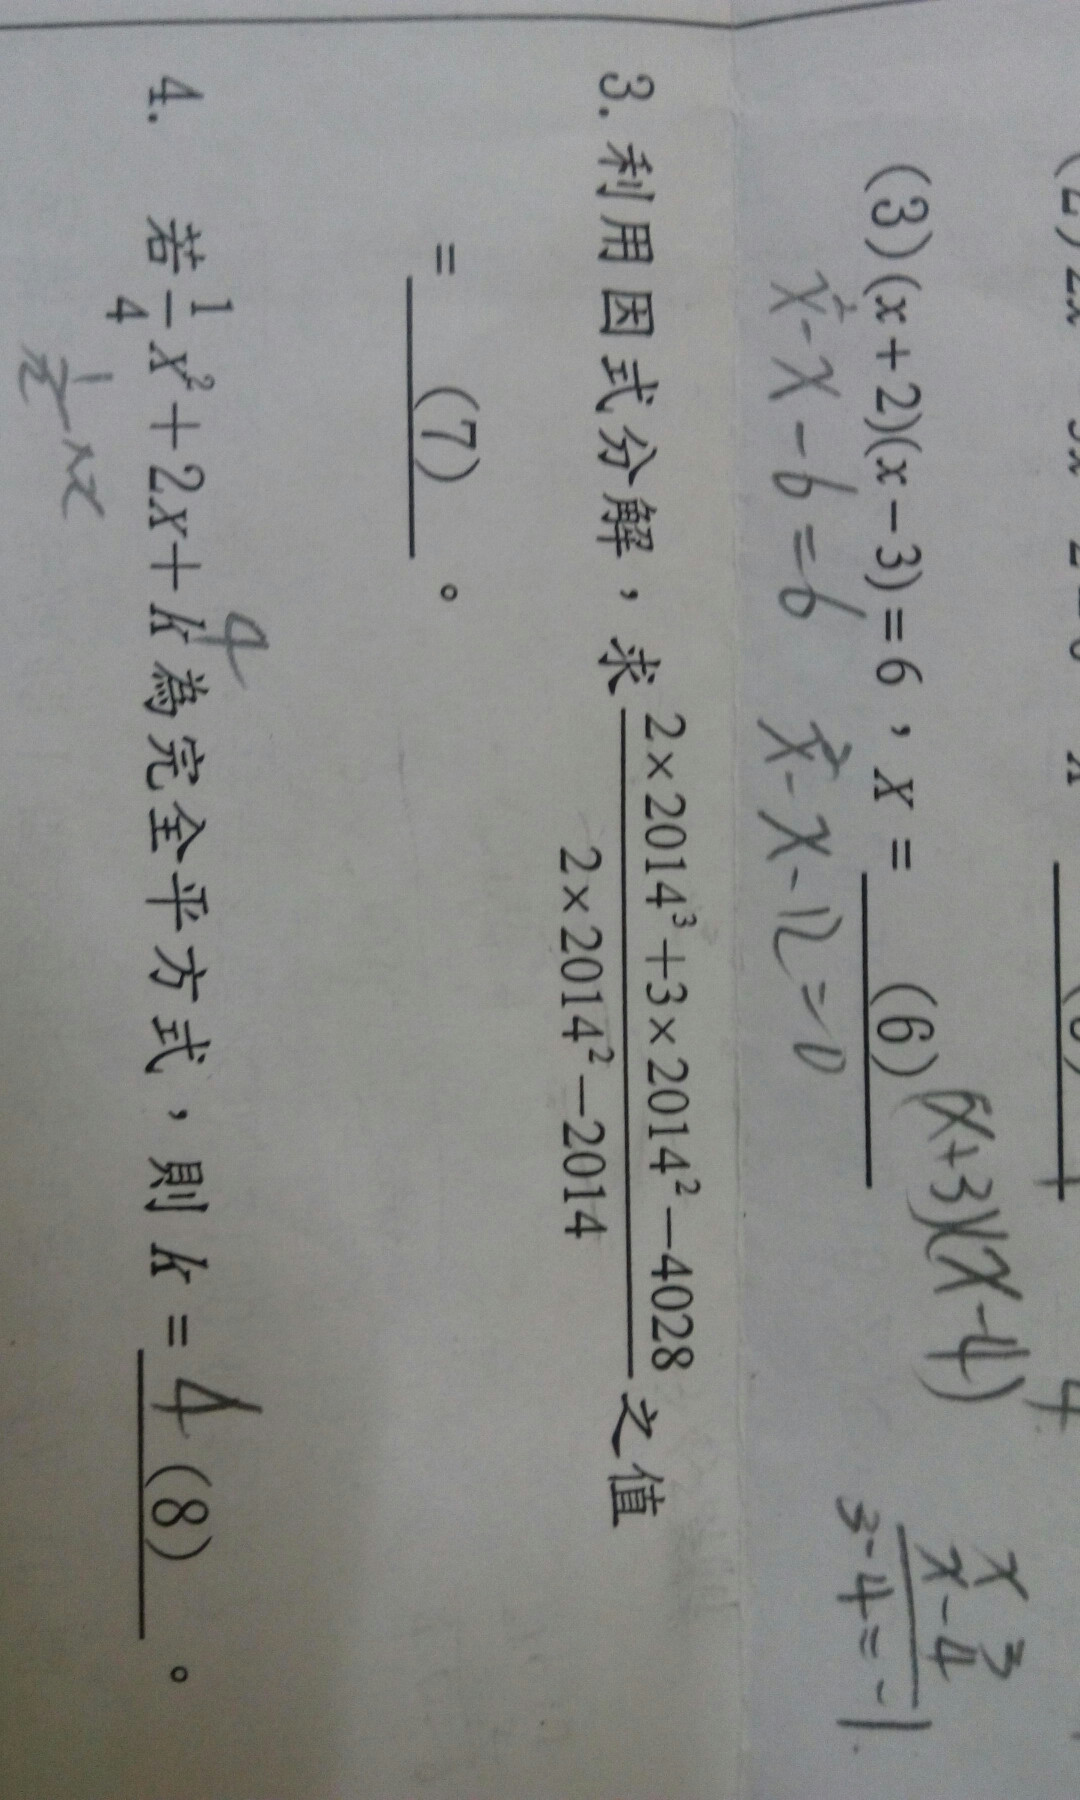 (3)(x+2)(x-3)=6，x= (6) (x+3)(x-4)
x²-x-6=6 x²-x-12=0
x 3
x -4
3-4=-1
3.利用因式分解，求 (2×2014³+3×2014²-4028)/(2×2014²-2014) 之值
= (7) 。
4. 若 1/4 x²+2x+k 為完全平方式，則 k = 4 (8) 。
4